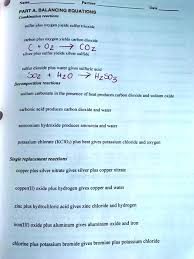 Name Partner Date
PART A. BALANCING EQUATIONS
Combination reactions
sulfur plus oxygen yields sulfur trioxide
carbon plus oxygen yields carbon dioxide
C + O₂ → CO₂
silver plus sulfur yields silver sulfide
sulfur dioxide plus water gives sulfuric acid
SO₂ + H₂O → H₂SO₃
Decomposition reactions
sodium carbonate in the presence of heat produces carbon dioxide and sodium oxide
carbonic acid produces carbon dioxide and water
ammonium hydroxide produces ammonia and water
potassium chlorate (KClO₃) plus heat gives oxygen and potassium chloride
Single replacement reactions
copper plus silver nitrate gives silver plus copper nitrate
copper(II) oxide plus hydrogen gives copper and water
zinc plus hydrochloric acid gives zinc chloride and hydrogen
iron(III) oxide plus aluminum gives aluminum oxide and iron
chlorine plus potassium bromide gives bromine plus potassium chloride